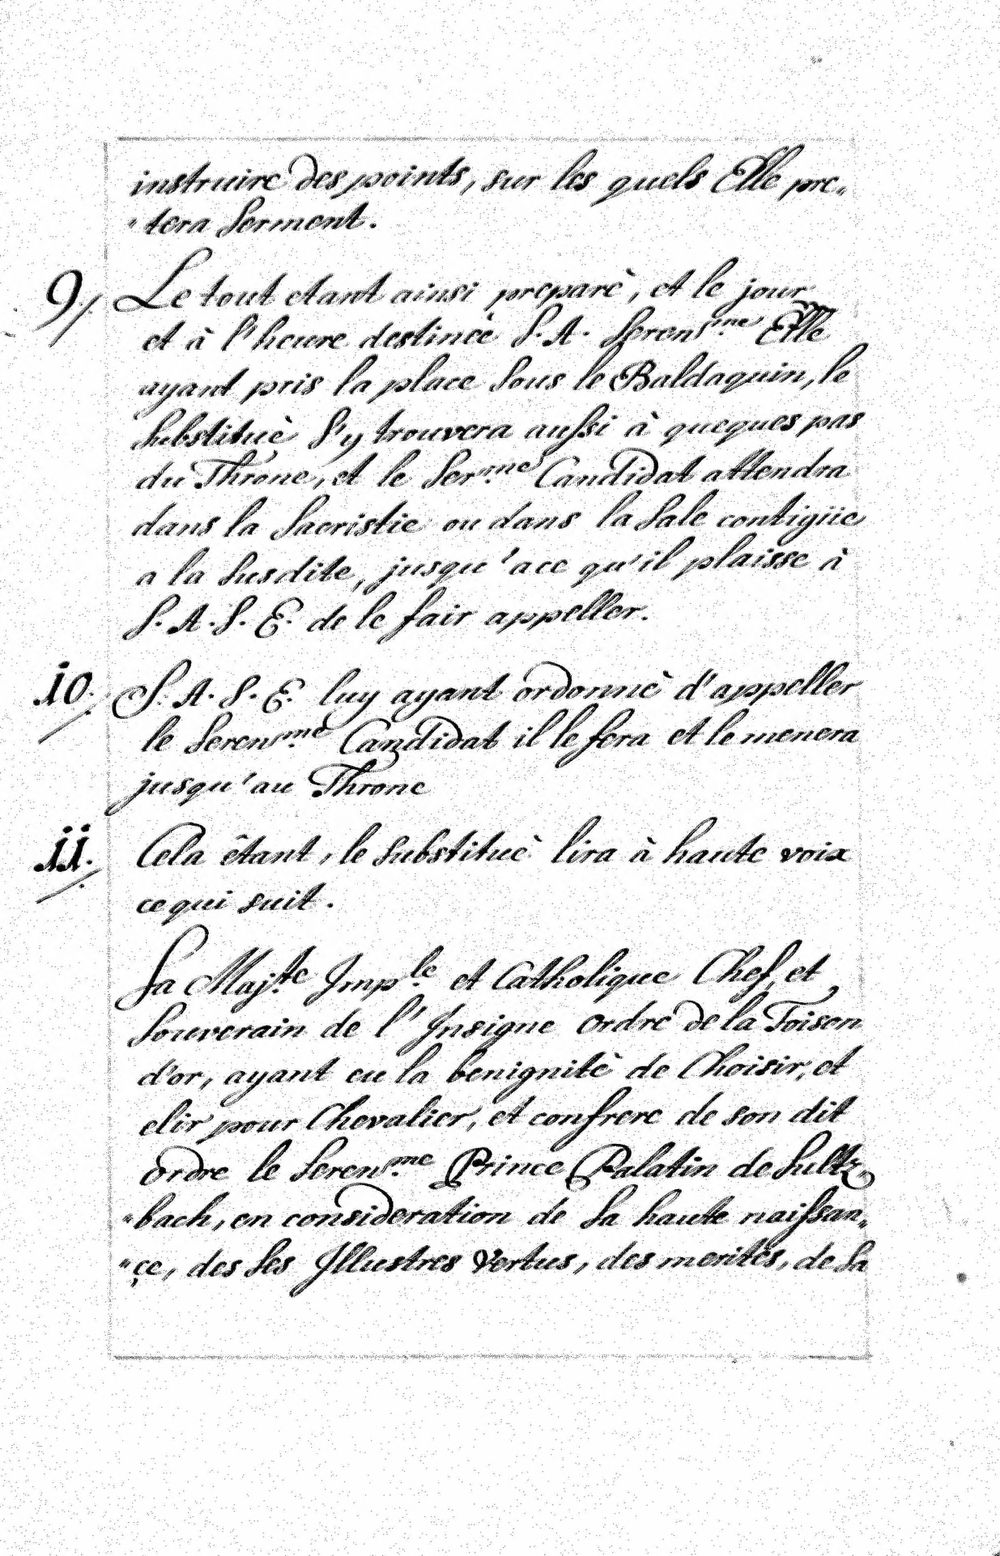 instruire des points, sur les quels Elle pre„
„tera Serment.
9./ Le tout etant ainsi preparè, et le jour
et à l'heure destineè S. A. Serens.me Elle
ayant pris la place Sous le Baldaquin, le
Substituè S'y trouvera aussi à quequès pas
du Throne, et le Ser.me Candidat attendra
dans la Sacristie ou dans la Sale contigüe
a la Susdite, jusqu'ace qu'il plaisse à
S. A. S. E. de le fair appeller.
10./ S. A. S. E. luy ayant ordonnè d'appeller
le Serens.me Candidat il le fera et le menera
jusqu'au Throne
11./ Cela êtant, le Substituè lira à haute voix
ce qui suit.
Sa Maj.te Imp.le et Catholique Chef, et
Souverain de l'Insigne ordre de la Toison
d'or, ayant eu la benignitè de Choisir, et
elir pour Chevalier, et confrere de son dit
ordre le Serens.me Prince Palatin de Sultz„
„bach, en consideration de Sa haute naissan„
„çe, des Ses Illustres Vertus, des meritès, de Sa